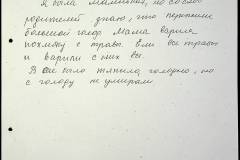 Я была маленькая, но со слов
родителей знаю, что пережили
большой голод. Мама варила
похлебку с травы. Ели все травы
и варили с них
В се было тяжело, голодно, но
с голоду не умирали